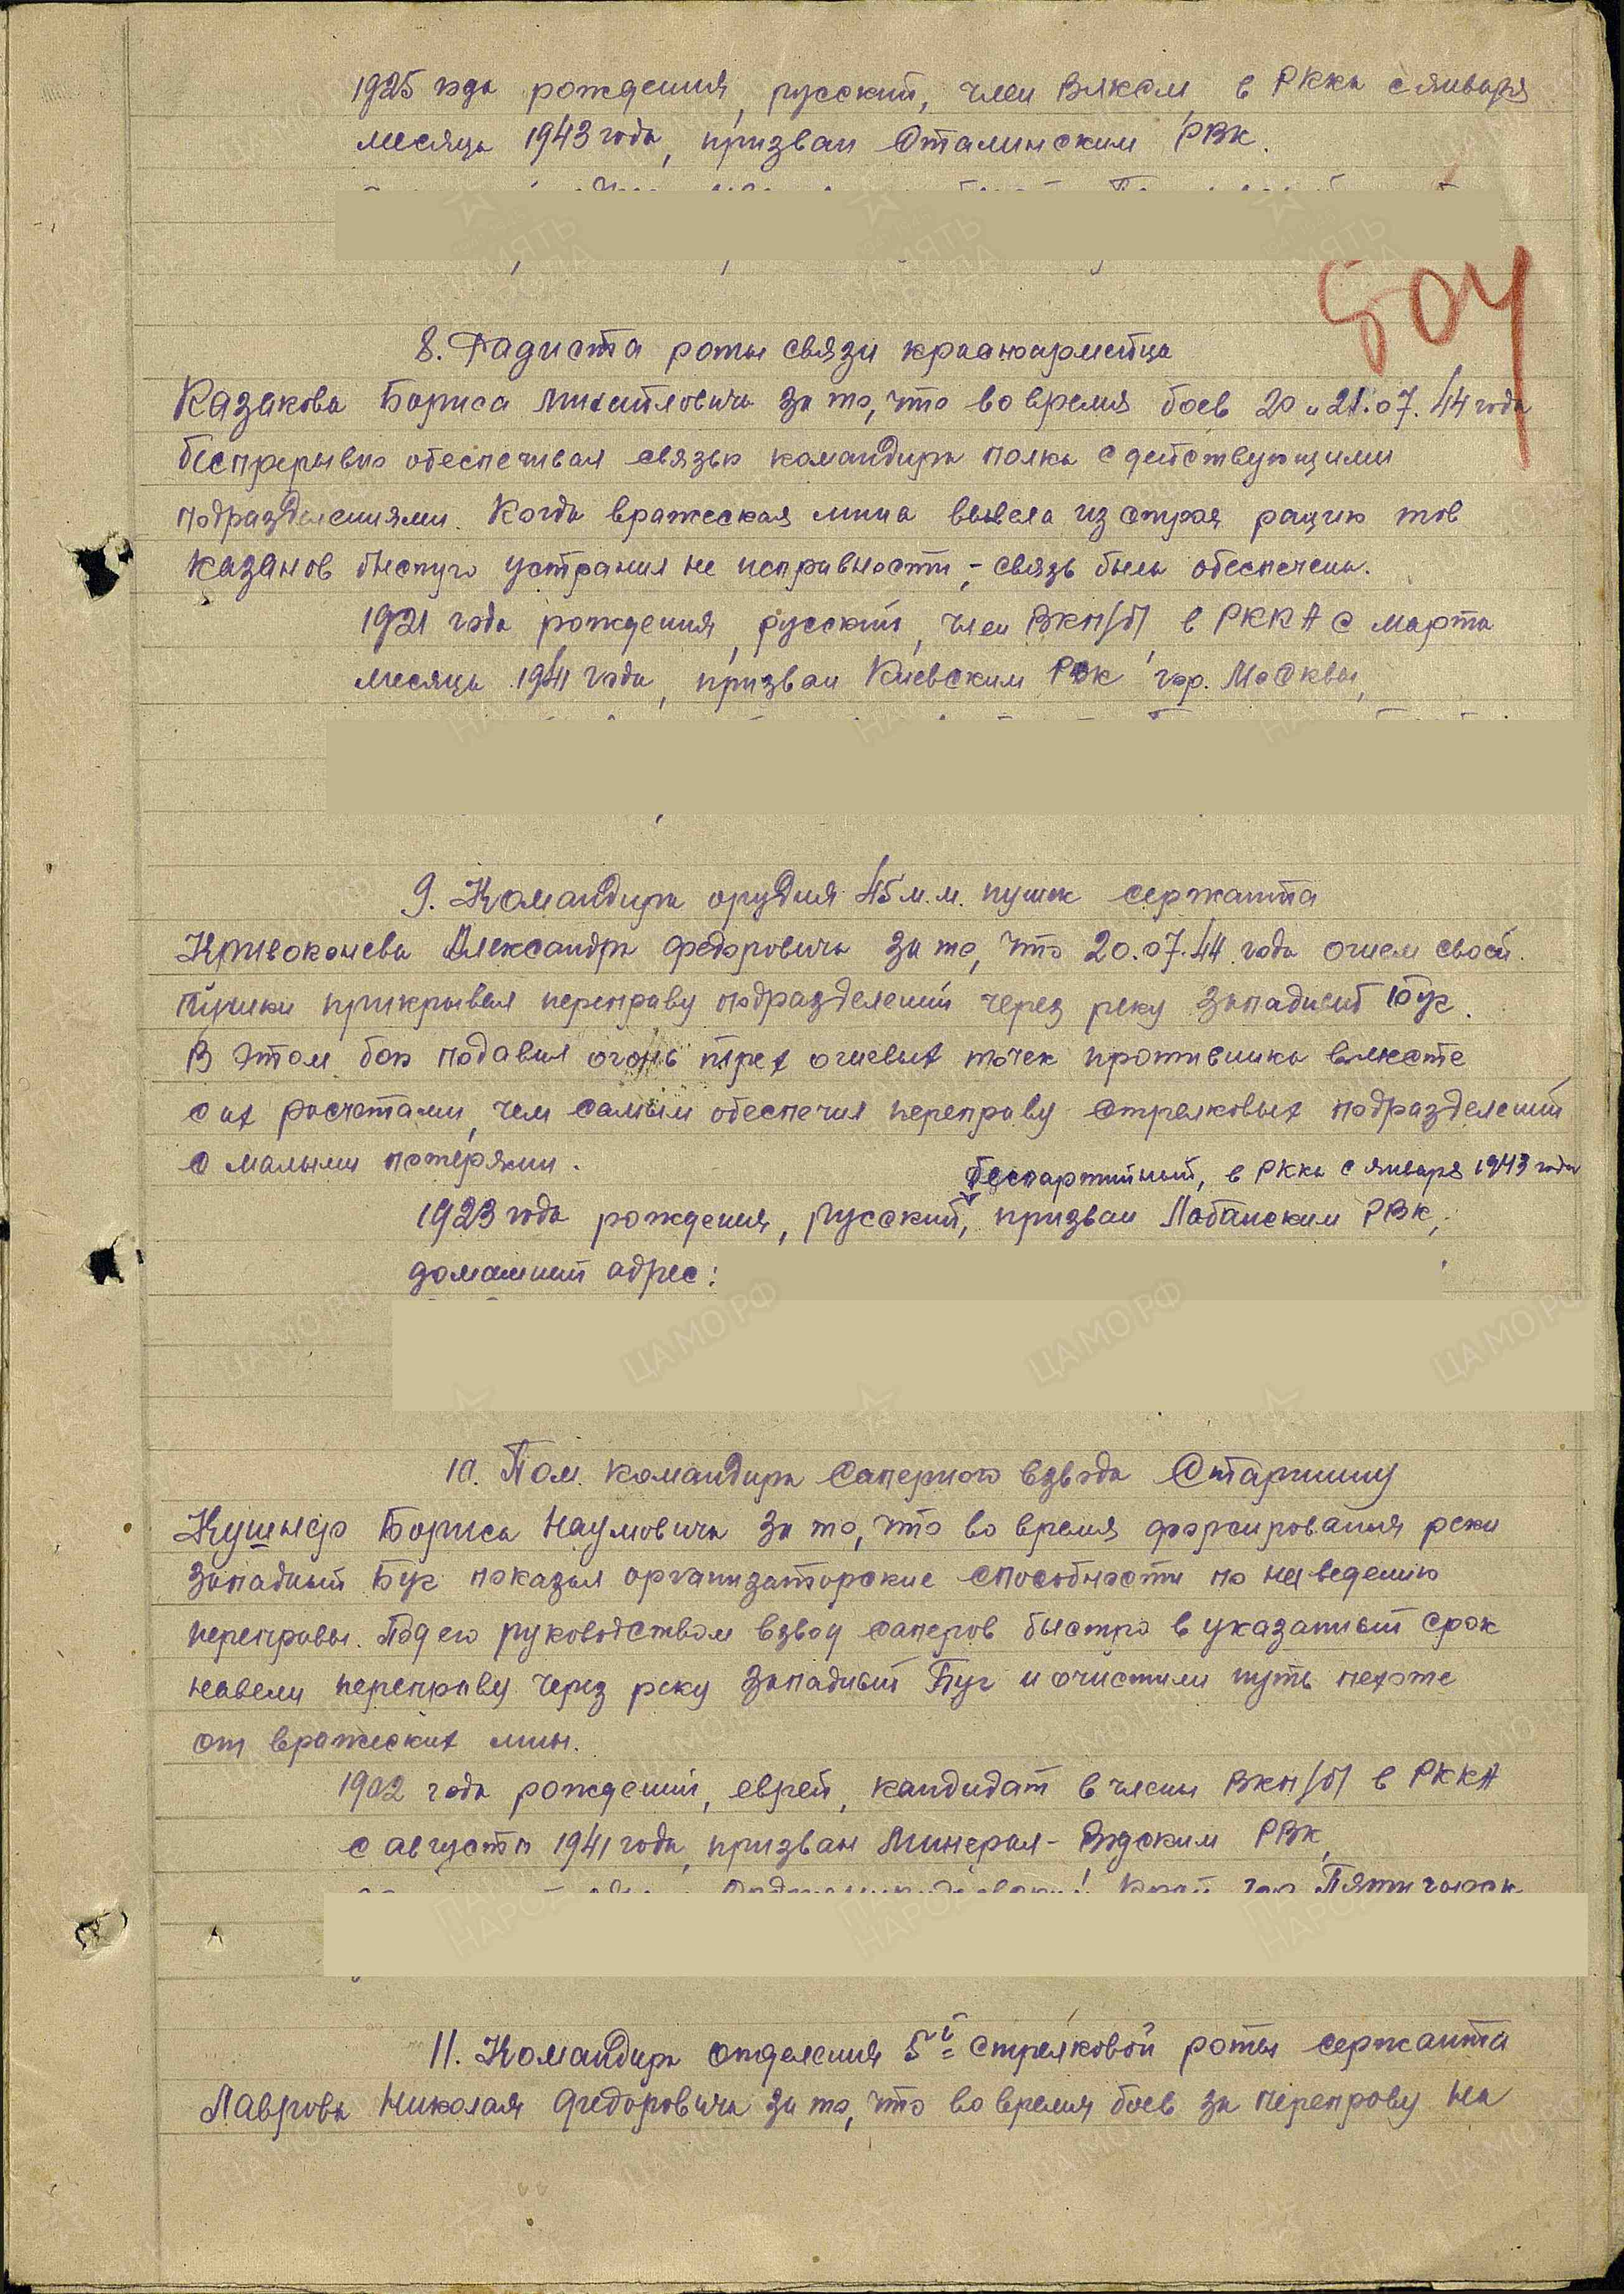 1925 года рождения, русский, член ВЛКСМ, в РККА с января
месяца 1943 года, призван Сталинским РВК.
504
8. Радиста роты связи красноармейца
Казакова Бориса Михайловича за то, что во время боев 20 и 21.07.44 года
беспрерывно обеспечивал связью командира полка с действующими
подразделениями. Когда вражеская мина вывела из строя рацию тов
Казаков быстро устранил не исправности, - связь была обеспечена.
1921 года рождения, русский, член ВКП/б/, в РККА с марта
месяца 1941 года, призван Киевским РВК гор. Москвы,
9. Командира орудия 45 м.м. пушек сержанта
Кривоконева Александра Федоровича за то, что 20.07.44 года огнем своей
пушки прикрывал переправу подразделений через реку Западный Буг.
В этом бою подавил огонь трех огневых точек противника вместе
с их расчетами, чем самым обеспечил переправу стрелковых подразделений
с малыми потерями.
беспартийный, в РККА с января 1943 года
1923 года рождения, русский, призван Лабинским РВК,
домашний адрес:
10. Пом. командира саперного взвода Старшину
Кушнер Бориса Наумовича за то, что во время форсирования реки
Западный Буг показал организаторские способности по наведению
переправы. Под его руководством взвод саперов быстро в указанный срок
навели переправу через реку Западный Буг и очистили путь пехоте
от вражеских мин.
1902 года рождений, еврей, кандидат в члены ВКП/б/ в РККА
с августа 1941 года, призван Минерал-Водским РВК,
Край гор Пятигорск
11. Командира отделения 5й стрелковой роты сержанта
Лаврова Николая Федоровича за то, что во время боев за переправу на
ЦА МО РФ
ПАМЯТЬ НАРОДА